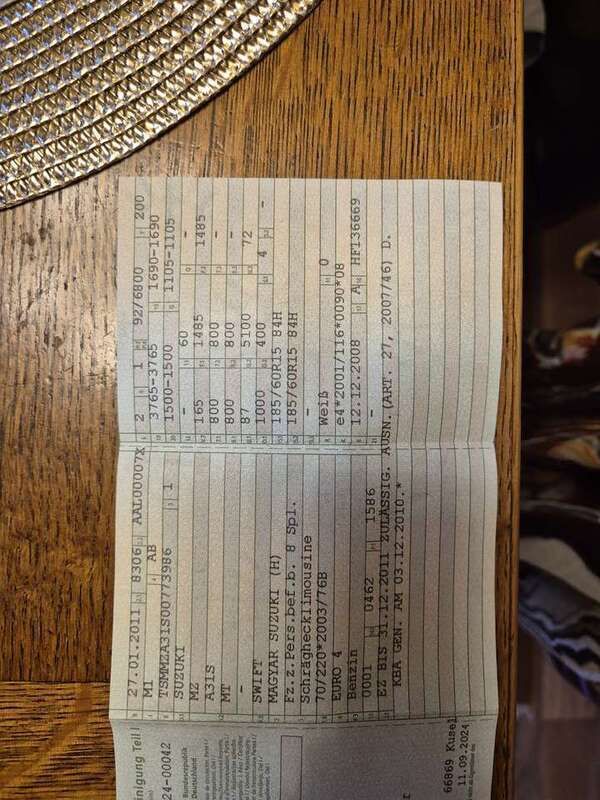 inigung Teil I
24-00042
Bundesrepublik
Deutschland
66869 Kusel
11.09.2024
27.01.2011 8306 AAL00007X
M1 AB
TSMMZA31S00773986 1
SUZUKI
MZ
A31S
MT
-
SWIFT
MAGYAR SUZUKI (H)
Fz.z.Pers.bef.b. 8 Spl.
Schräghecklimousine
70/220*2003/76B
EURO 4
Benzin
0001 0462 1586
EZ BIS 31.12.2011 ZULÄSSIG. AUSN.(ART. 27, 2007/46) D.
KBA GEN. AM 03.12.2010.*
2 1 92/6800 200
3765-3765 1690-1690
1500-1500 1105-1105
- 60 -
165 1485 1485
800 800 -
800 800 -
87 5100 72
1000 400 4 -
185/60R15 84H
185/60R15 84H
-
Weiß 0
e4*2001/116*0090*08
12.12.2008 A HF136669
-